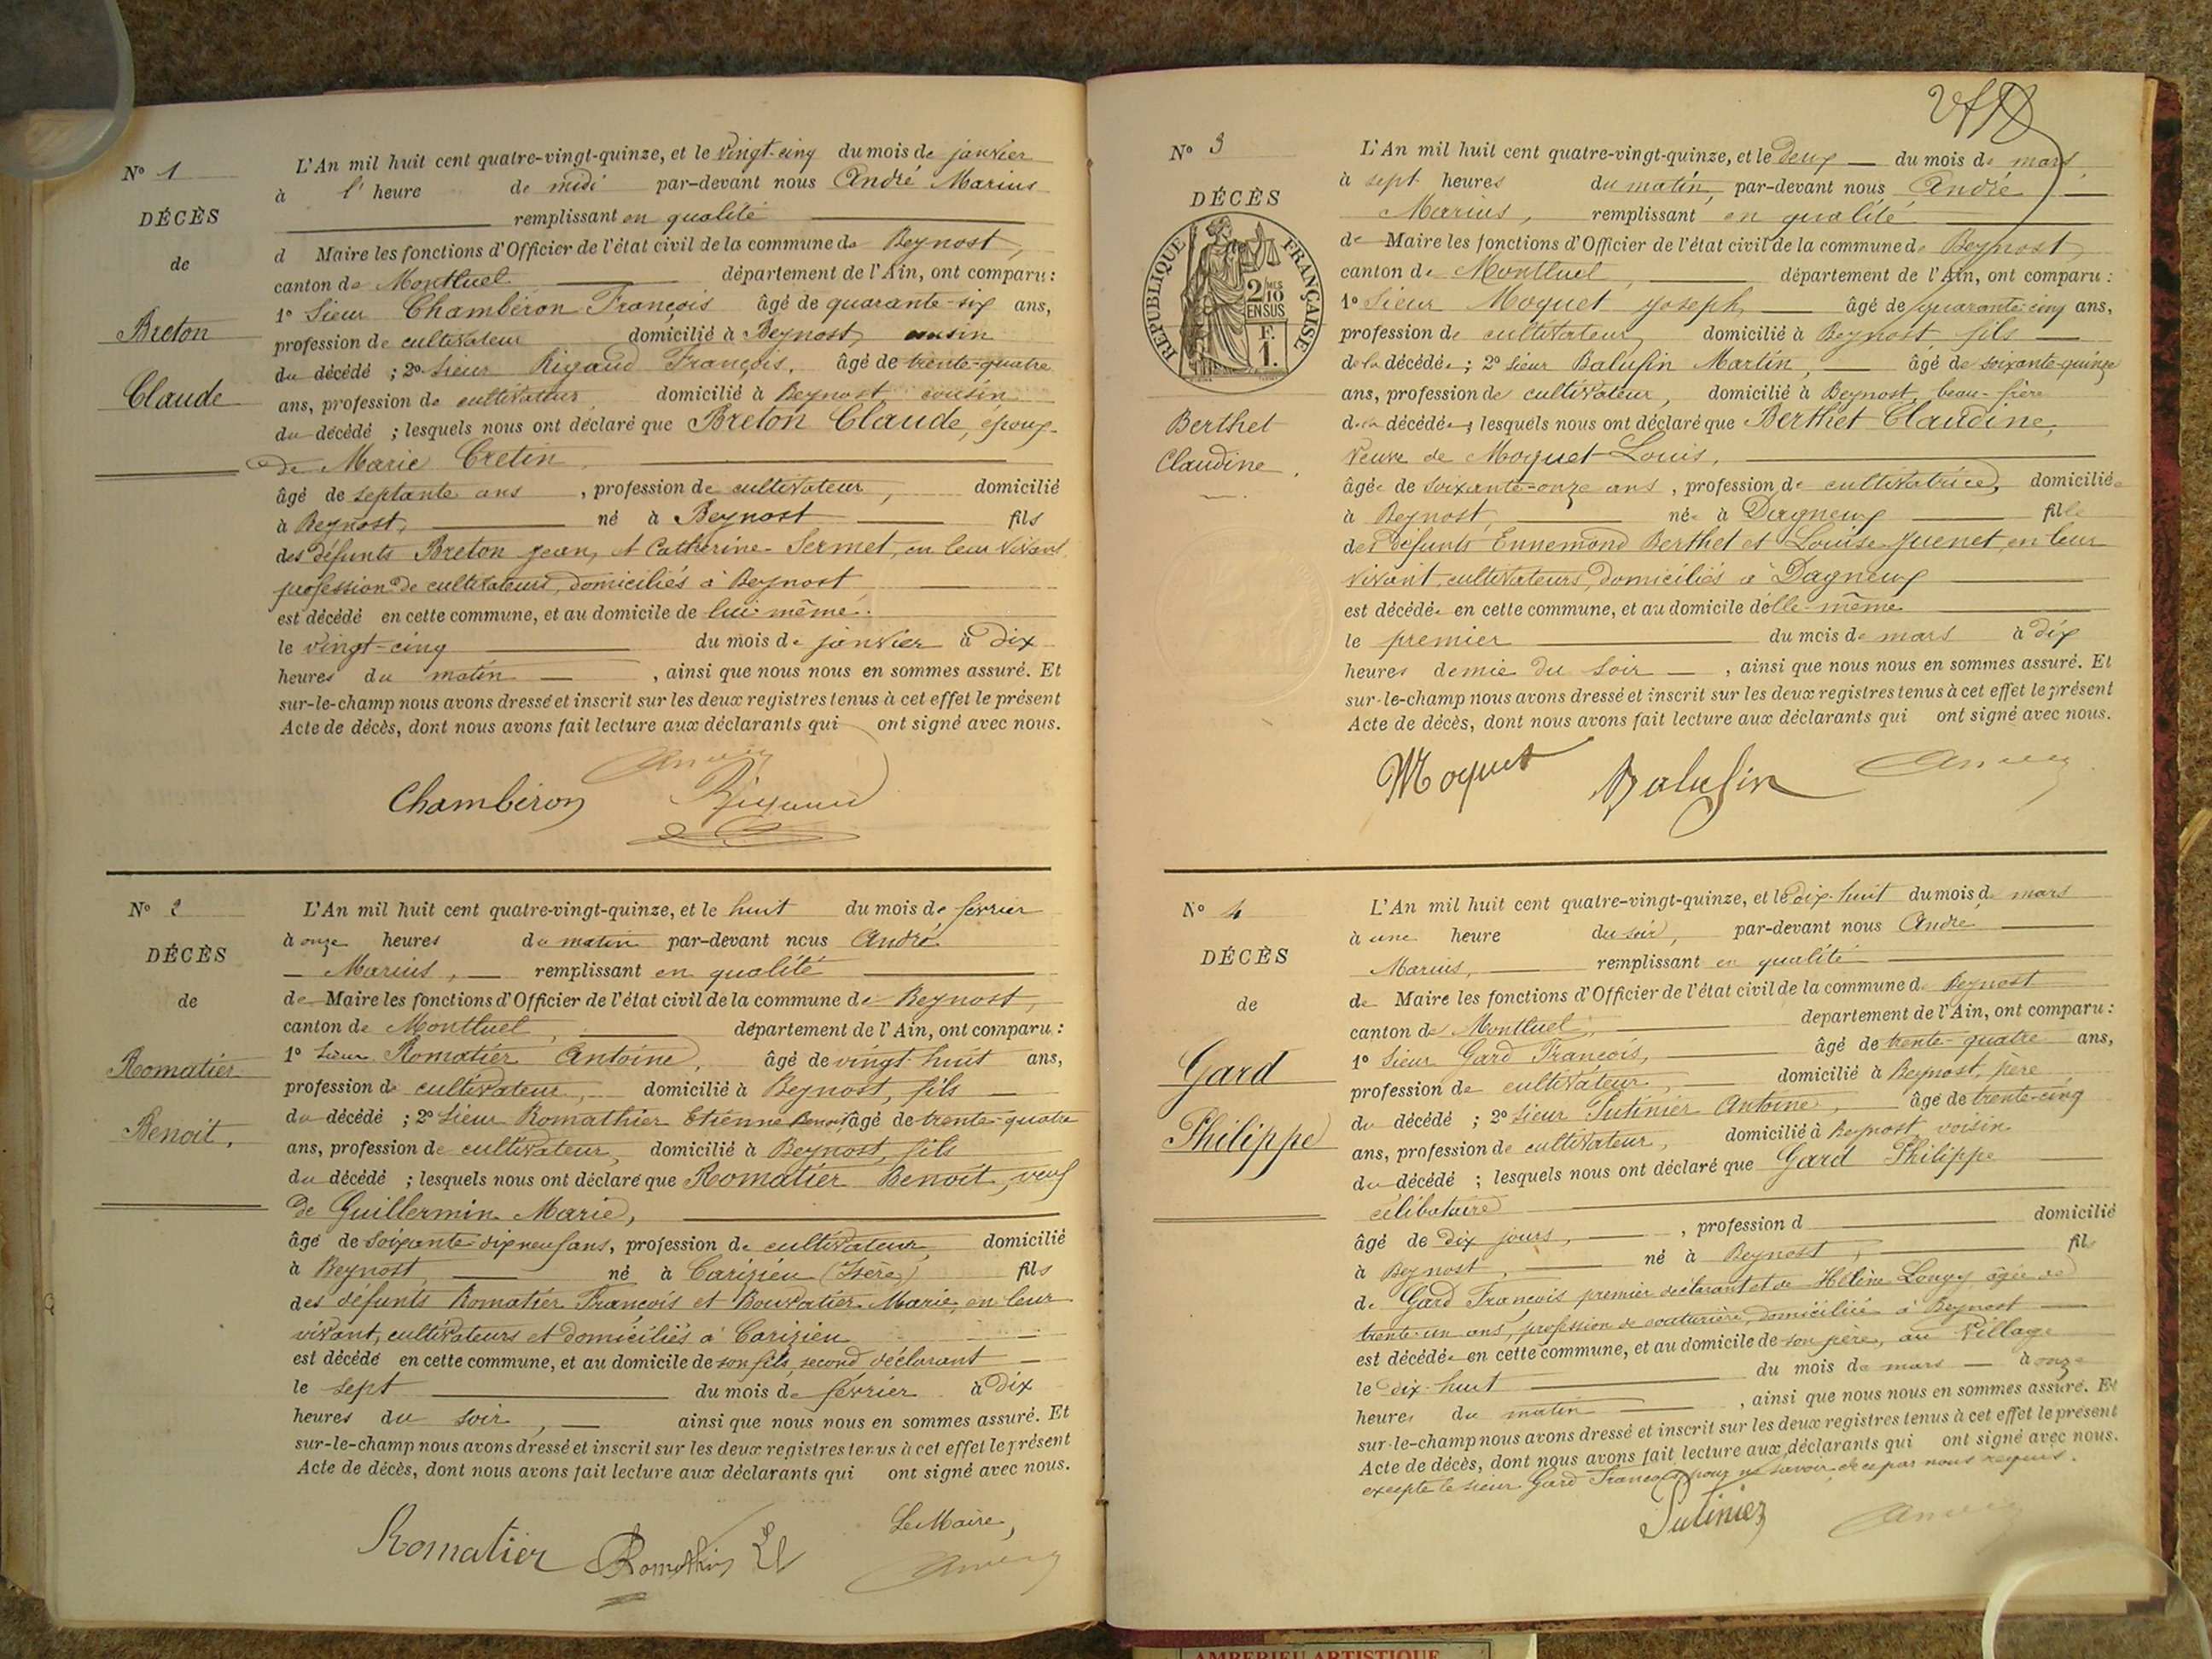 N° 1
DÉCÈS
de
Breton
Claude
L'An mil huit cent quatre-vingt-quinze, et le vingt-cinq du mois de janvier
à l'heure de midi par-devant nous André Marius
remplissant en qualité
d Maire les fonctions d'Officier de l'état civil de la commune de Beynost,
canton de Montluel département de l'Ain, ont comparu :
1° Sieur Chambéron François âgé de quarante-six ans,
profession de cultivateur domicilié à Beynost, cousin
du décédé ; 2° Sieur Rigaud François, âgé de trente-quatre
ans, profession de cultivateur domicilié à Beynost cousin
du décédé ; lesquels nous ont déclaré que Breton Claude, époux
de Marie Cretin
âgé de septante ans, profession de cultivateur, domicilié
à Beynost, né à Beynost fils
des défunts Breton Jean, et Catherine Sermet, en leur vivant
profession de cultivateurs, domiciliés à Beynost
est décédé en cette commune, et au domicile de lui-même.
le vingt-cinq du mois de janvier à dix
heures du matin, ainsi que nous nous en sommes assuré. Et
sur-le-champ nous avons dressé et inscrit sur les deux registres tenus à cet effet le présent
Acte de décès, dont nous avons fait lecture aux déclarants qui ont signé avec nous.
Chambéron Rigaud
N° 2
DÉCÈS
de
Romatier
Benoit,
L'An mil huit cent quatre-vingt-quinze, et le huit du mois de février
à onze heures du matin par-devant nous André
Marius, remplissant en qualité
de Maire les fonctions d'Officier de l'état civil de la commune de Beynost,
canton de Montluel, département de l'Ain, ont comparu :
1° Sieur Romatier Antoine, âgé de vingt-huit ans,
profession de cultivateur, domicilié à Beynost, fils
du décédé ; 2° Sieur Romathier Etienne Benoit âgé de trente-quatre
ans, profession de cultivateur, domicilié à Beynost, fils
du décédé ; lesquels nous ont déclaré que Romatier Benoit, veuf
de Guillermin Marie,
âgé de soixante dix neuf ans, profession de cultivateur, domicilié
à Beynost, né à Carizieu (Isère) fils
des défunts Romatier François et Bouvatier Marie, en leur
vivant, cultivateurs et domiciliés à Carizieu
est décédé en cette commune, et au domicile de son fils, second déclarant
le sept du mois de février à dix
heures du soir, ainsi que nous nous en sommes assuré. Et
sur-le-champ nous avons dressé et inscrit sur les deux registres tenus à cet effet le présent
Acte de décès, dont nous avons fait lecture aux déclarants qui ont signé avec nous.
Le Maire,
Romatier Romathier
N° 3
DÉCÈS
RÉPUBLIQUE FRANÇAISE
2/10 EN SUS
F. 1.
Berthet
Claudine
L'An mil huit cent quatre-vingt-quinze, et le deux du mois de mars,
à sept heures du matin, par-devant nous André
Marius, remplissant en qualité
de Maire les fonctions d'Officier de l'état civil de la commune de Beynost,
canton de Montluel, département de l'Ain, ont comparu :
1° Sieur Moquet Joseph, âgé de quarante-cinq ans,
profession de cultivateur, domicilié à Beynost, fils
de la décédée ; 2° Sieur Balufin Martin, âgé de soixante-quinze
ans, profession de cultivateur, domicilié à Beynost, beau-frère
de la décédée ; lesquels nous ont déclaré que Berthet Claudine,
veuve de Moquet Louis,
âgée de soixante-onze ans, profession de cultivatrice, domiciliée
à Beynost, née à Dagneux fille
des défunts Ennemond Berthet et Louise Juenet, en leur
vivant, cultivateurs, domiciliés à Dagneux
est décédée en cette commune, et au domicile d'elle-même
le premier du mois de mars à dix
heures demie du soir, ainsi que nous nous en sommes assuré. Et
sur-le-champ nous avons dressé et inscrit sur les deux registres tenus à cet effet le présent
Acte de décès, dont nous avons fait lecture aux déclarants qui ont signé avec nous.
Moquet Balufin
N° 4
DÉCÈS
de
Gard
Philippe
L'An mil huit cent quatre-vingt-quinze, et le dix-huit du mois de mars
à une heure du soir, par-devant nous André
Marius, remplissant en qualité
de Maire les fonctions d'Officier de l'état civil de la commune de Beynost
canton de Montluel, département de l'Ain, ont comparu :
1° Sieur Gard François, âgé de trente-quatre ans,
profession de cultivateur, domicilié à Beynost, père
du décédé ; 2° Sieur Putinier Antoine, âgé de trente-cinq
ans, profession de cultivateur, domicilié à Beynost, voisin
du décédé ; lesquels nous ont déclaré que Gard Philippe
célibataire
âgé de dix jours, profession d domicilié
à Beynost, né à Beynost, fils
de Gard François premier déclarant et de Hélène Longy âgée de
trente-un ans, profession de couturière, domiciliée à Beynost
est décédé en cette commune, et au domicile de son père, au Village
le dix-huit du mois de mars à onze
heures du matin, ainsi que nous nous en sommes assuré. Et
sur-le-champ nous avons dressé et inscrit sur les deux registres tenus à cet effet le présent
Acte de décès, dont nous avons fait lecture aux déclarants qui ont signé avec nous.
excepté le sieur Gard François pour ne savoir, de ce par nous requis.
Putinier
AMBERIEU ARTISTIQUE